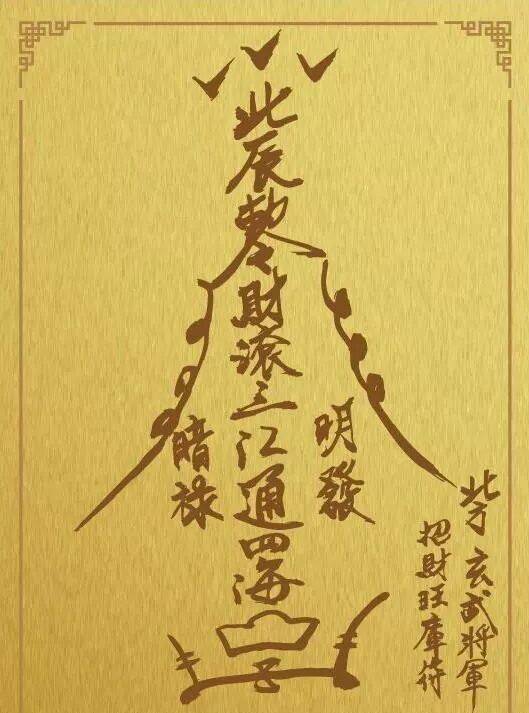 北辰敕令財滾三江通四海
明發
暗祿
北方玄武將軍
招財旺庫符